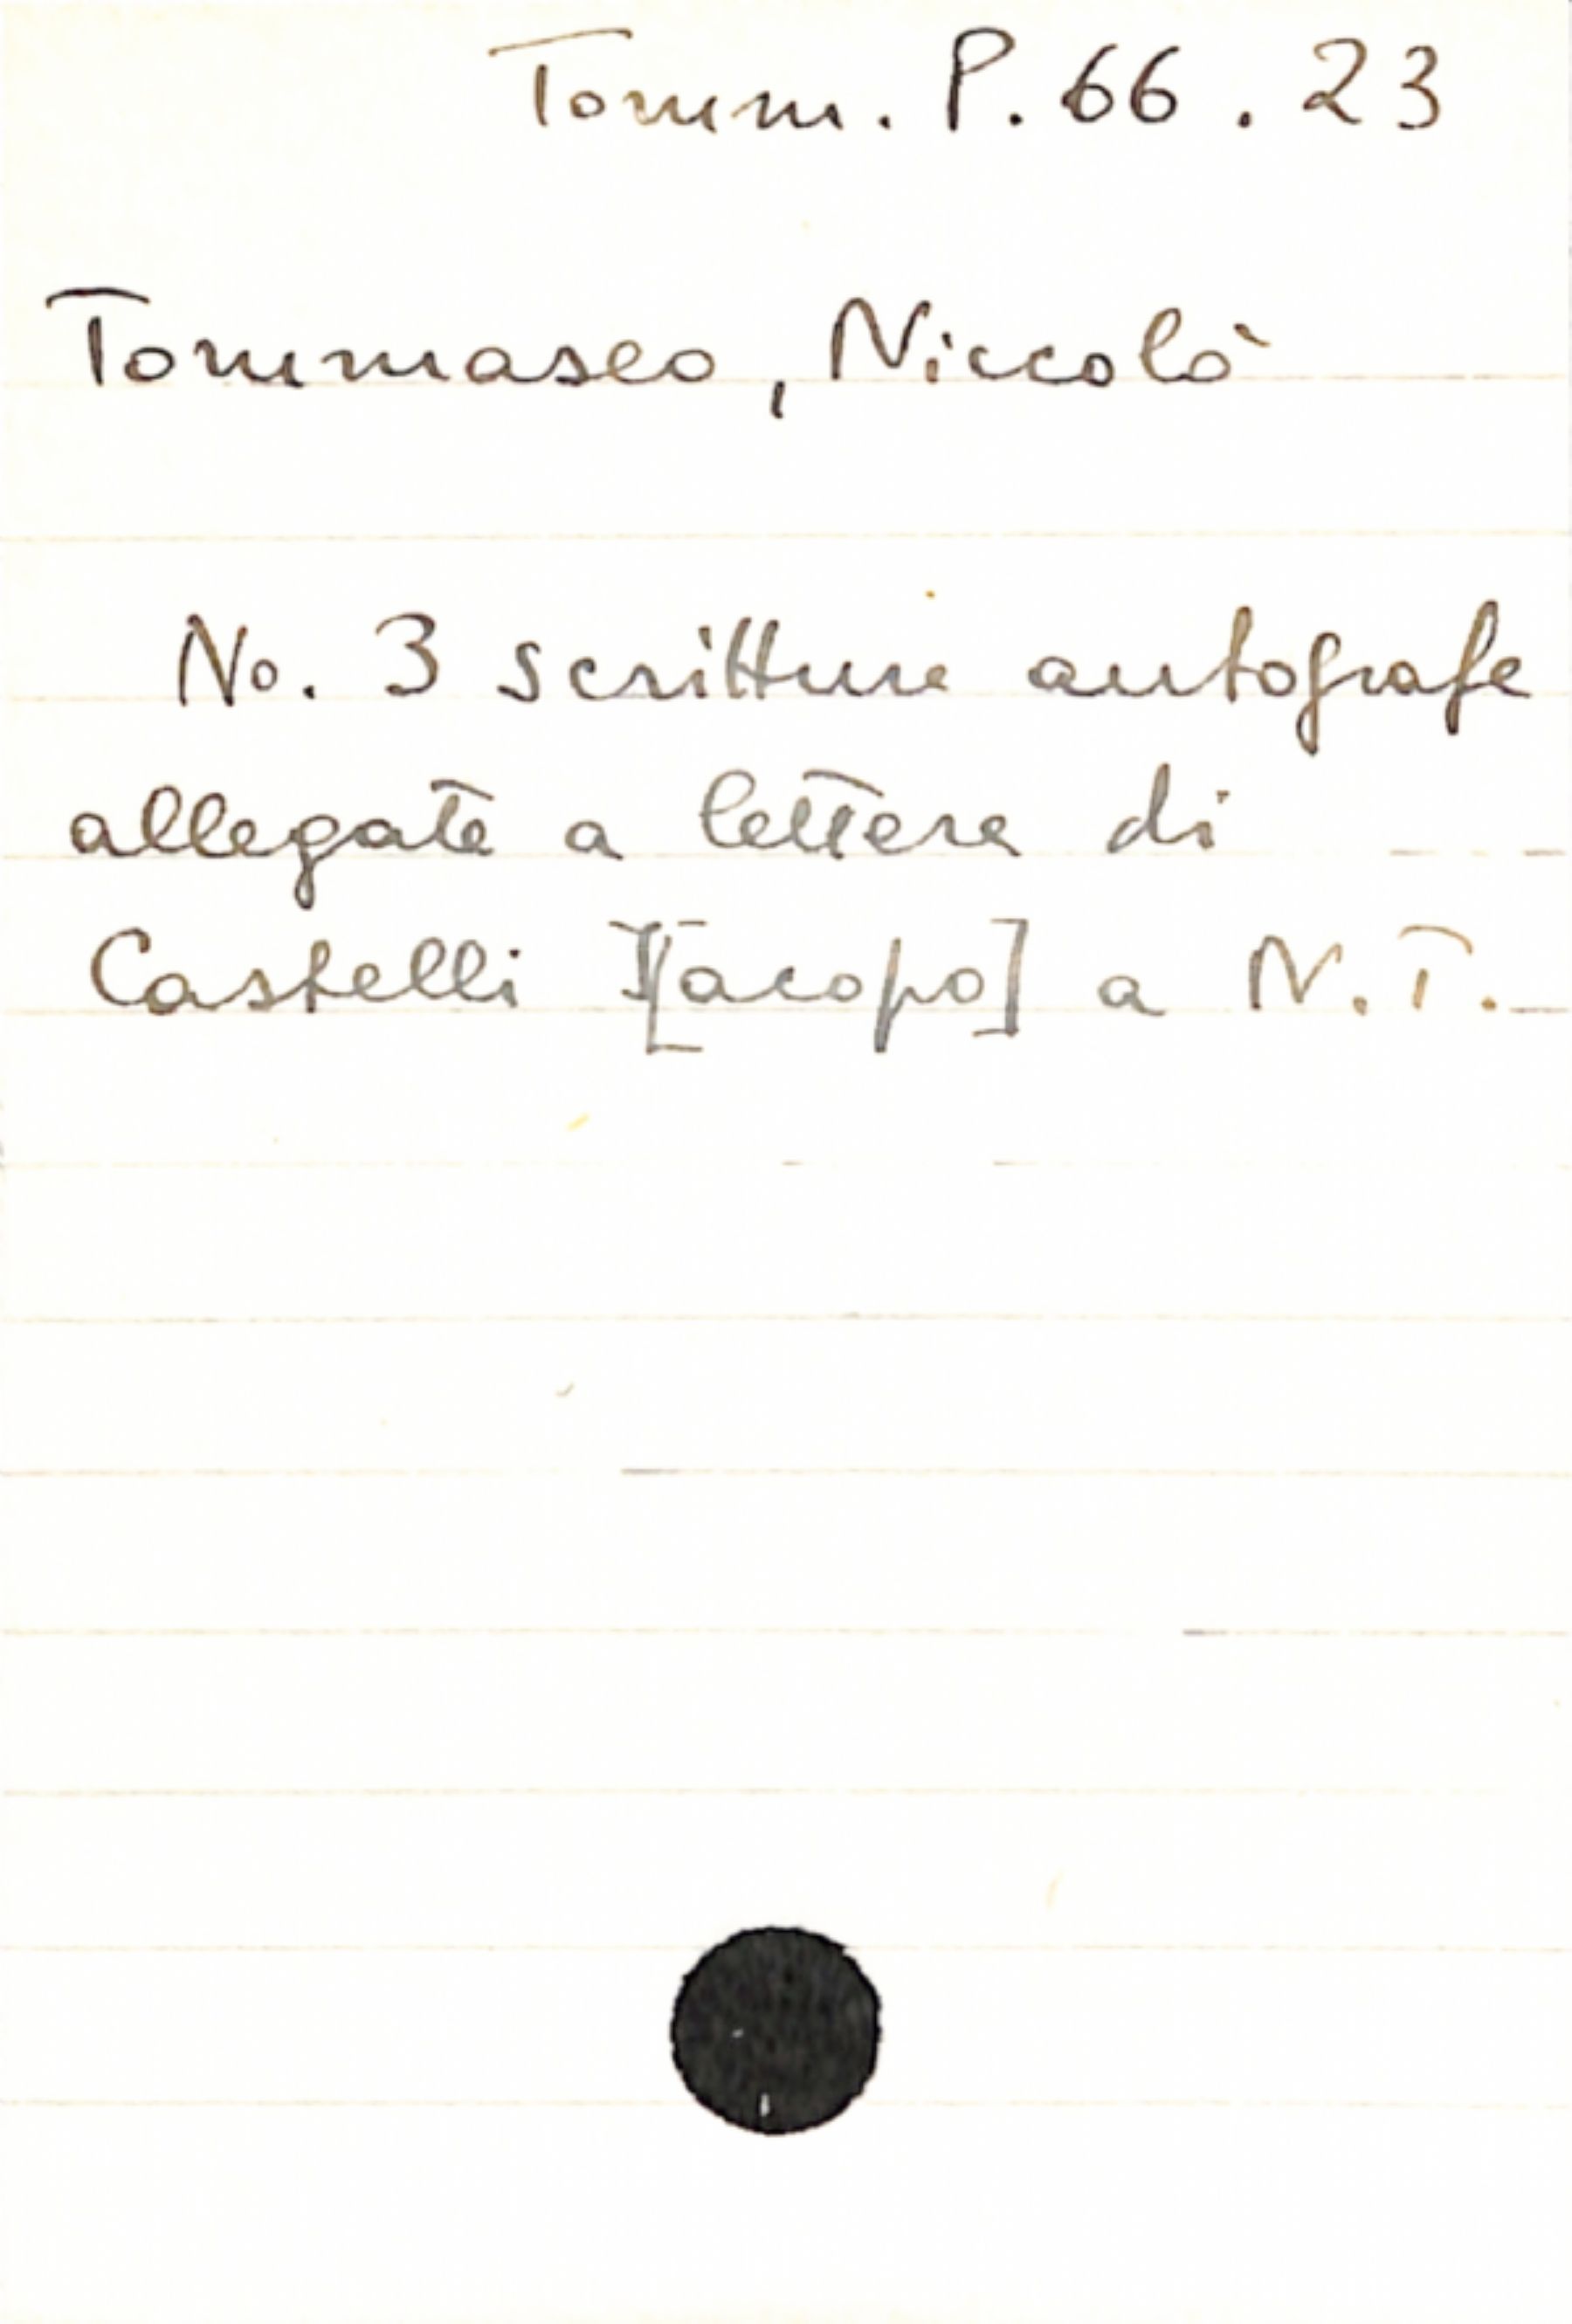 Tomm. P. 66. 23
Tommaseo, Niccolò
No. 3 scritture autografe
allegate a lettere di
Castelli I[acopo] a N. T.